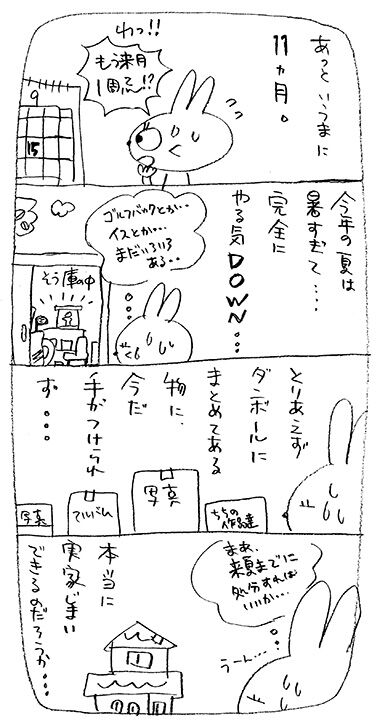 あっというまに
11ヵ月。
わっ!!
もう来月
1周忌!?
9
15
今年の夏は
暑すぎて・・・
完全に
やる気DOWN・・・
ゴルフバックとか・・
イスとか・・・
まだいろいろ
ある・・
そう庫の中
とりあえず
ダンボールに
まとめてある
物に、
今だ
手がつけられ
ず・・・
ちちの
作品達
写真
アルバム
写真
まあ、
来夏までに
処分すれば
いいか・・・
うーん・・・
本当に
実家じまい
できるのだろうか・・・